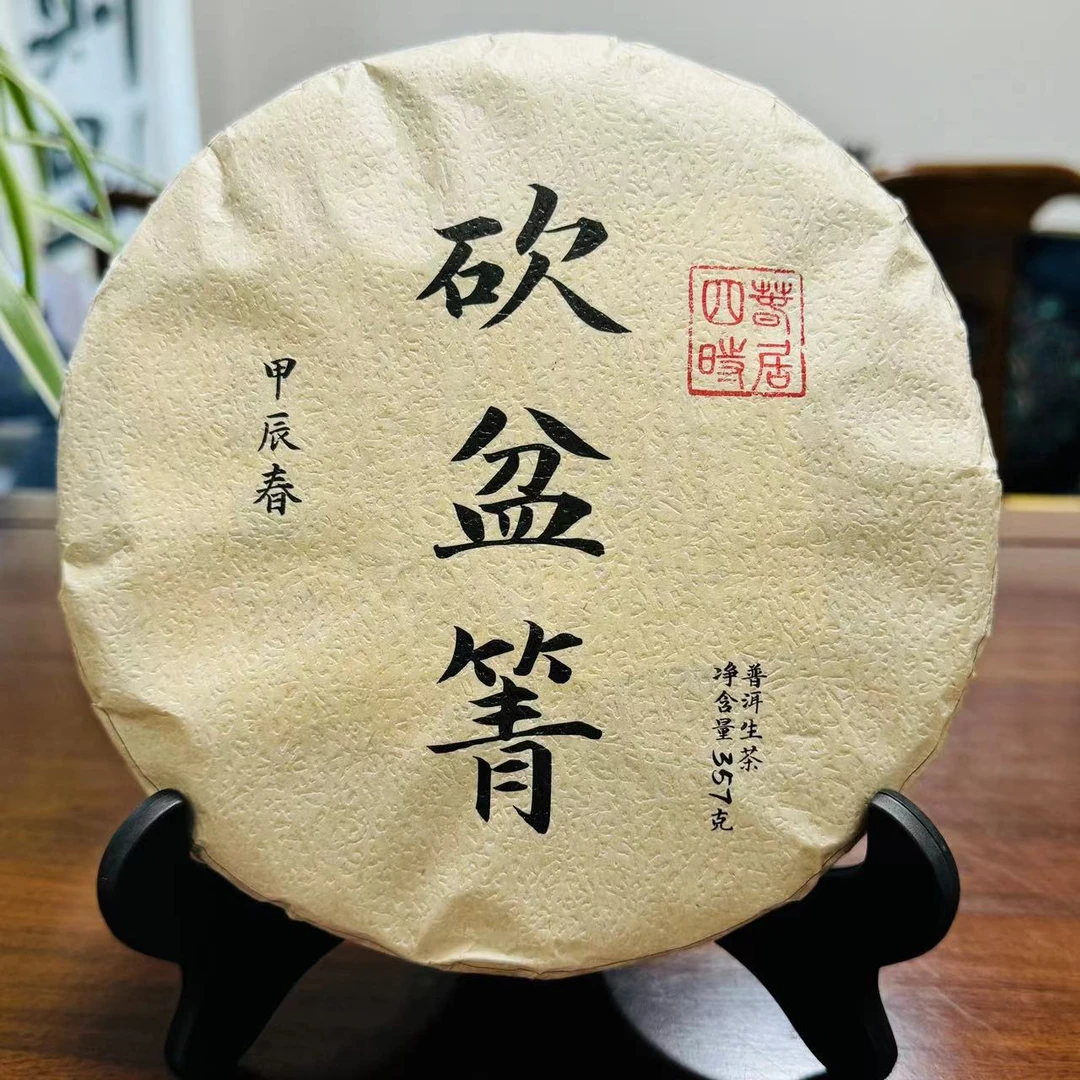 普居
四時
砍盆箐
甲辰春
普洱生茶
净含量357克